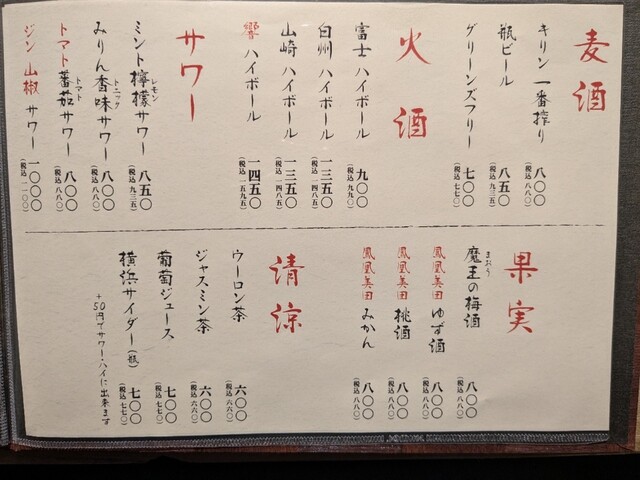 麦酒
キリン 一番搾り 八〇〇
(税込 八八〇)
瓶ビール 八五〇
(税込 九三五)
グリーンズフリー 七〇〇
(税込 七七〇)
火酒
富士 ハイボール 九〇〇
(税込 九九〇)
白州 ハイボール 一三五〇
(税込 一四八五)
山崎 ハイボール 一三五〇
(税込 一四八五)
響 ハイボール 一四五〇
(税込 一五九五)
サワー
ミント檸檬サワー 八五〇
レモン
(税込 九三五)
みりん香味サワー 八〇〇
トニック
(税込 八八〇)
トマト蕃茄サワー 八〇〇
トマト
(税込 八八〇)
ジン 山椒 サワー 一〇〇〇
(税込 一一〇〇)
果実
魔王の梅酒 八〇〇
まおう
(税込 八八〇)
鳳凰美田 ゆず酒 八〇〇
(税込 八八〇)
鳳凰美田 桃酒 八〇〇
(税込 八八〇)
鳳凰美田 みかん 八〇〇
(税込 八八〇)
清涼
ウーロン茶 六〇〇
(税込 六六〇)
ジャスミン茶 六〇〇
(税込 六六〇)
葡萄ジュース 七〇〇
(税込 七七〇)
横浜サイダー(瓶) 七〇〇
(税込 七七〇)
+50円でサワー・ハイに出来ます